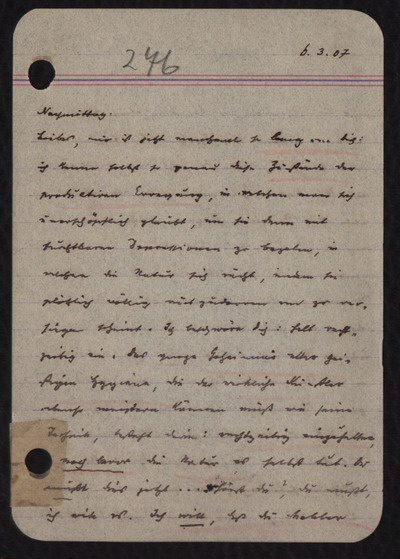 246
6.3.07
Nachmittag.
Lieber, mir ist jetzt manchmal so bang um dich:
ich kenne selbst so genau diese Zustände der
produktiven Erregung, in welchen man sich
unerschöpflich glaubt, um sie dann mit
furchtbaren Depressionen zu bezahlen, in
welchen die Natur sich rächt, indem sie
plötzlich völlig und gar zu ver-
siegen scheint. Ich beschwöre dich: halt recht-
zeitig ein. Das ganze Geheimnis aller gei-
stigen Hygiene, die der wirkliche Künstler
können muß wie seine
Technik, besteht darin: rechtzeitig einzuhalten,
noch bevor die Natur es selbst tut. Du
mußt dies jetzt ... hörst du, du mußt,
ich will es. Ich will, daß du